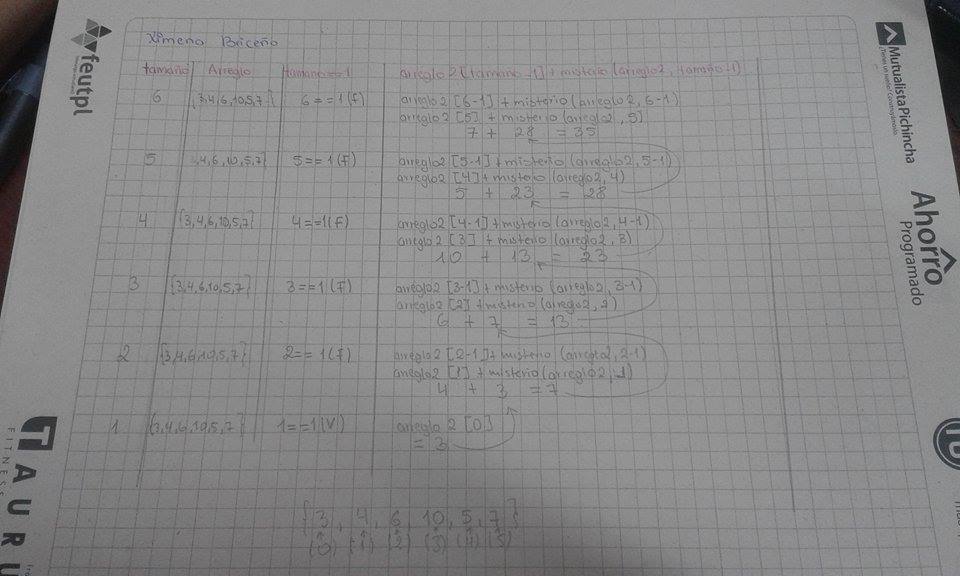 Ximena Briceño
tamaño Arreglo tamano==1 arreglo2[tamano-1]+misterio(arreglo2, tamaño-1)
6 {3,4,6,10,5,7} 6==1(F) arreglo2[6-1]+misterio(arreglo2, 6-1)
arreglo2[5]+misterio(arreglo2, 5)
7 + 28 = 35
5 {3,4,6,10,5,7} 5==1(F) arreglo2[5-1]+misterio(arreglo2, 5-1)
arreglo2[4]+misterio(arreglo2, 4)
5 + 23 = 28
4 {3,4,6,10,5,7} 4==1(F) arreglo2[4-1]+misterio(arreglo2, 4-1)
arreglo2[3]+misterio(arreglo2, 3)
10 + 13 = 23
3 {3,4,6,10,5,7} 3==1(F) arreglo2[3-1]+misterio(arreglo2, 3-1)
arreglo2[2]+misterio(arreglo2, 2)
6 + 7 = 13
2 {3,4,6,10,5,7} 2==1(F) arreglo2[2-1]+misterio(arreglo2, 2-1)
arreglo2[1]+misterio(arreglo2, 1)
4 + 3 = 7
1 {3,4,6,10,5,7} 1==1(V) arreglo2[0]
= 3
{3, 4, 6, 10, 5, 7}
(0) (1) (2) (3) (4) (5)
feutpl
TAURU
FITNESS
MutualistaPichincha
Ahorro
Programado